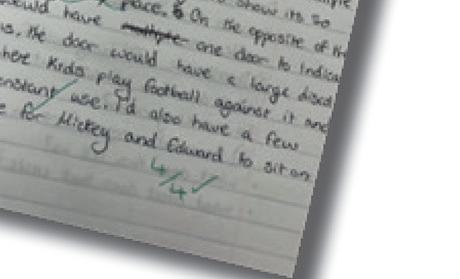 show its so
place. On the opposite of th
would have one door to indica
us. the door would have a large disco
here kids play football against it and
constant use. I'd also have a few
e for Mickey and Edward to sit on
4/4